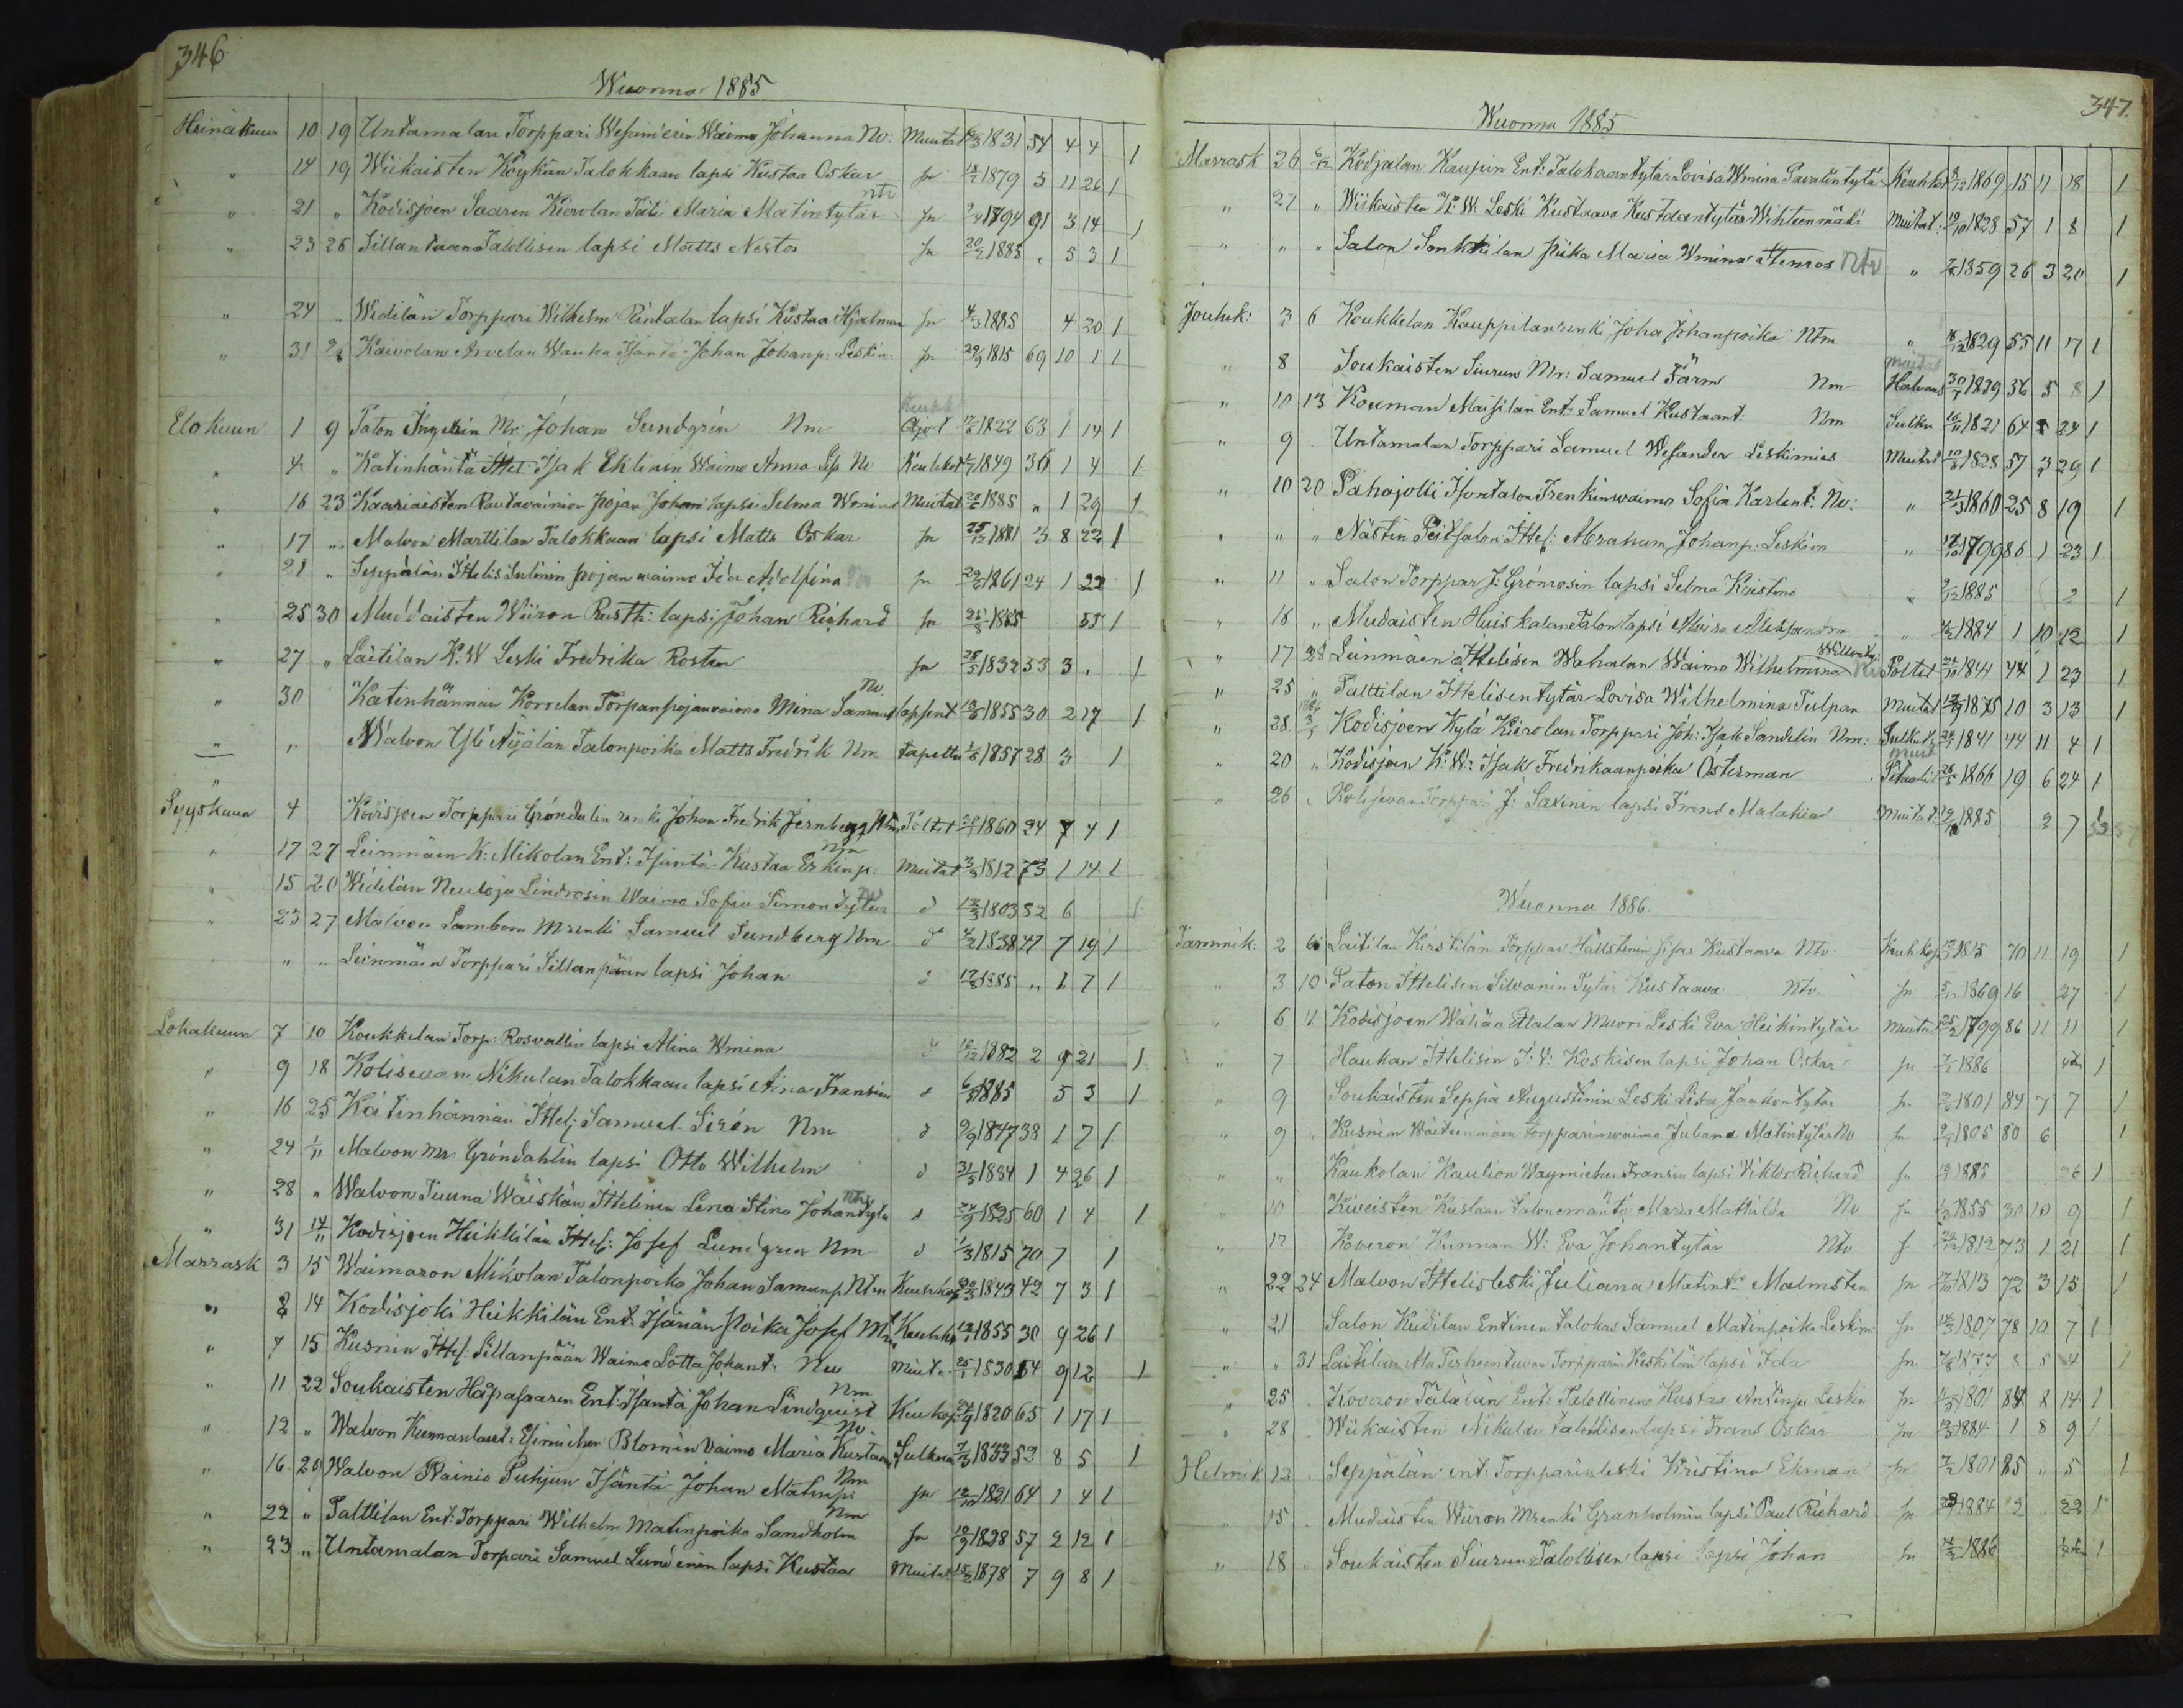 346
Wuonna 1885
Heinäkuun 10 19 Untamalan Torppari Wesanderin Waimo Johanna Nv. Muutat 6/3 1831 54 4 4 1
" 14 19 Wiikaisten Köykän Talokkaan lapsi Kustaa Oskar sn 18/7 1879 5 11 26 1
" 21 " Kodisjoen Saaren Kierolan Täti Maria Matintytär Ntv sn 7/4 1794 91 3 14 1
" 23 26 Sillantaan Talollisen lapsi Matts Nestor sn 20/2 1885 " 5 3 1
" 24 " Widilän Torppari Wilhelm Rintalan lapsi Kustaa Hjalmar sn 4/3 1885 4 20 1
" 31 26 Kaivolan Arvelan Wanha Isäntä Johan Johanp. Leskim. sn 29/9 1815 69 10 1 1
Elokuun 1 9 Salon Mr. Johan Sundgrén Nm 17/6 1822 63 1 14 1
" 4 " Katinhäntä Isak Eklinin Waimo Anna Nv Keuhkot 1849 36 1 4 1
" 16 23 Kaariaisten Rautavainion pojan Johani lapsi Selma Wmina Muutat 20/6 1885 " 1 29 1
" 17 " Malvon Marttilan Talokkaan lapsi Matts Oskar sn 25/12 1881 3 8 22 1
" 21 " Seppälän Ittelis Salinin pojan waimo Ida Adolfina Nv sn 29/6 1861 24 1 22 1
" 25 30 Mudaisten Wiiron Rusth: lapsi Johan Richard sn 25/8 1885 1
" 27 " Laitilan K:W Leski Fredrika Rosten sn 28/5 1832 53 3 " 1
" 30 Katinhännän Korrelan Torpanpojanwaimo Mina Samuel Nv lapsent 13/6 1855 30 2 17 1
" " Malvon Yli Äijälän Talonpoika Matts Fredrik Nm tapettu 1/5 1857 28 3 1
Syyskuun 4 Kodisjoen Torppari Gröndalin renki Johan Fredrik Jernberg Nm Poltet 1860 24 7 4 1
" 17 27 Leinmäen K: Mikolan Ent: Isäntä Kustaa Erkinp: Nm Muutat 3/8 1812 73 1 14 1
" 15 20 Widilän Neuloja Lindrosin Waimo Sofia Simontytär Nv d 15/3 1803 82 6 1
" 23 27 Malvon Lambom Mrenki Samuel Sundberg Nm d 4/2 1838 47 7 19 1
" " " Leinmäen Torppari Sillanpään lapsi Johan d 17/8 1885 " 1 7 1
Lokakuun 7 10 Koukkelan Torp: Rosvallin lapsi Alina Wmina d 16/12 1882 2 9 21 1
" 9 18 Kolisevan Nikulan Talokkaan lapsi Aina Fransina d 6/5 1885 5 3 1
" 16 25 Katinhännän Ittel: Samuel Sirén Nm d 9/9 1847 38 1 7 1
" 24 1/11 Malvon Mr. Gröndahlin lapsi Otto Wilhelm d 31/5 1884 1 4 26 1
" 28 " Walvon Tuuna Wäiskän Ittelinen Lena Stina Johantyttä d 24/9 1825 60 1 4 1
" 31 14/11 Kodisjoen Heikkilän Ittel: Josef Lundgren Nm d 1/3 1815 70 7 1
Marrask 3 15 Waimaron Mikolan Talonpoika Johan Samunp. Ntm Keuhkop 30/3 1843 42 7 3 1
" 8 14 Kodisjoki Heikkilän Ent: Isännän Poika Josef Keuhko 12/1 1855 30 9 26 1
" 7 15 Kusnin Ittel: Sillanpään Waimo Lotta Johant. Nv Muuta 25/1 1830 54 9 12 1
" 11 22 Soukaisten Haapasaaren Ent: Isäntä Johan Lindquist Nm Keuhkop 24/9 1820 65 1 17 1
" 12 " Walvon Kunnanlaut: Esimiehen Blomin Vaimo Maria Kustaan Nv. Sulkea 7/3 1833 52 8 5 1
" 16 20 Walvon Wainio Puhjun Isäntä Johan Matinp: Nm sn 12/10 1821 64 1 4 1
" 22 " Palttilan Ent: Torppari Wilhelm Matinpoika Sandholm Nm sn 10/9 1828 57 2 12 1
" 23 " Untamalan Torpari Samuel Lundenin lapsi Kustaa Muutat 15/2 1878 7 9 8 1
347.
Wuonna 1885
Marrask 26 6/12 Kodjalan Kaupin Ent: Talokaantytär Lovisa Wmina Pavalintytär Keuhkot 8/12 1869 15 11 18 1
" 27 " Wiikaisten K:W. Leski Kustaava Kustaantytär Wihteenmäki Muutat: 19/10 1828 57 1 8 1
" " " Salon Sonkkilan Piika Maria Wmina Stenroos Ntv " 7/8 1859 26 3 20 1
Jouluk: 3 6 Koukkelan Kauppilan renki Joha Johanpoika Ntm " 16/12 1829 55 11 17 1
" 8 Soukaisten Siurun Mr: Samuel Färm Nm Halvaus 30/7 1829 56 5 8 1
" 10 13 Kouman Maisilan Ent: Samuel Kustaant: Nm Sulku 16/11 1821 64 " 24 1
" 9 Untamalan Torppari Samuel Wesander Leskimies Muutat 10/8 1828 57 3 29 1
" 10 20 Pahajolli Isontalon Frenkinwaimo Sofia Karlent: Nv: " 21/3 1860 25 8 19 1
" " " Nästin Peitsalon Ittel: Abraham Johanp: Leskim " 17/10 1799 86 1 23 1
" 11 " Salon Torppar J: Grönroosin lapsi Selma Kristina " 9/12 1885 2 1
" 16 " Mudaisten Huiskalan Talon lapsi Maria Aleksandra " 4/2 1884 1 10 12 1
" 17 28 Leinmäen Ittelisen Wahalan Waimo Wilhelmina Nv Poltet 24/10 1844 44 1 23 1
" 25 " Palttilan Ittelisentytär Lovisa Wilhelmina Tulpan Muutat 12/9 1875 10 3 13 1
" 28. 3/1 1886 Kodisjoen Kylä Kierolan Torppari Joh: Isak Sandelin Nm: Sulkut 24/1 1841 44 11 4 1
" 20 " Kodisjoen K:W: Isak Fredrikaanpoika Österman 26/5 1866 19 6 24 1
" 26 " Kolisjevan Torppari J: Saxinin lapsi Frans Malakias Muutat: 19/9 1885 3 7 1
Wuonna 1886.
Tammik: 2 6 Laitilan Kirstilän Torppar Hällstenin sisar Kustaava Ntv. Keuhkop 13/1 1815 70 11 19 1
" 3 10 Saton Ittelisen Silvanin Tytär Kustaava Ntv. sn 5/12 1869 16 27 1
" 6 11 Kodisjoen Wähän Ettalan Muori Leski Eva Heikintytär Muutat 25/2 1799 86 11 11 1
" 7 Haukan Ittelisen J:V: Koskisen lapsi Johan Oskar sn 7/1 1886 1
" 9 Soukaisten Seppä Augustinin Leski Lisa Jaakontytär sn 2/6 1801 84 7 7 1
" 9 Kusnin Wäiteenmäen Torpparinwaimo Juliana Matintytär Nv sn 9/7 1805 80 6 1
" " Kaukolan Kaulion Waymiehen Fransin lapsi Viktor Richard sn 13/12 1885 26 1
" 10 Kiveisten Kuslaan Talonemäntä Maria Mattilda Nv sn 1/3 1855 30 10 9 1
" 17 Koveron Kunnan W: Eva Johantytär Ntv s 26/11 1812 73 1 21 1
" 22 24 Malvon Ittelisleski Juliana Matint: Malmsten sn 7/10 1813 72 3 15 1
" 21 Salon Kudilan Entinen talokas Samuel Matinpoika Leskim: sn 14/3 1807 78 10 7 1
" " 31 Laitilan Ala Terhontuvan Torpparin Keskilän lapsi Ida sn 7/8 1877 8 5 4 1
" 25 Koveron Tälälän Ent: Talollinen Kustaa Antinp: Leskim sn 11/5 1801 84 8 14 1
" 28 Wiikaisten Nikulan Talollisenlapsi Frans Oskar sn 19/5 1884 1 8 9 1
Helmik 12 Seppälän ent: Torpparinleski Kristina Ekman sn 7/2 1801 85 " 5 1
" 15 Mudaisten Wiiron Mrenki Granholmin lapsi Paul Richard sn 1884 2 " 22 1
" 18 Soukaisten Siurun Talollisen lapsi lapsi Johan sn 18/2 1886 1